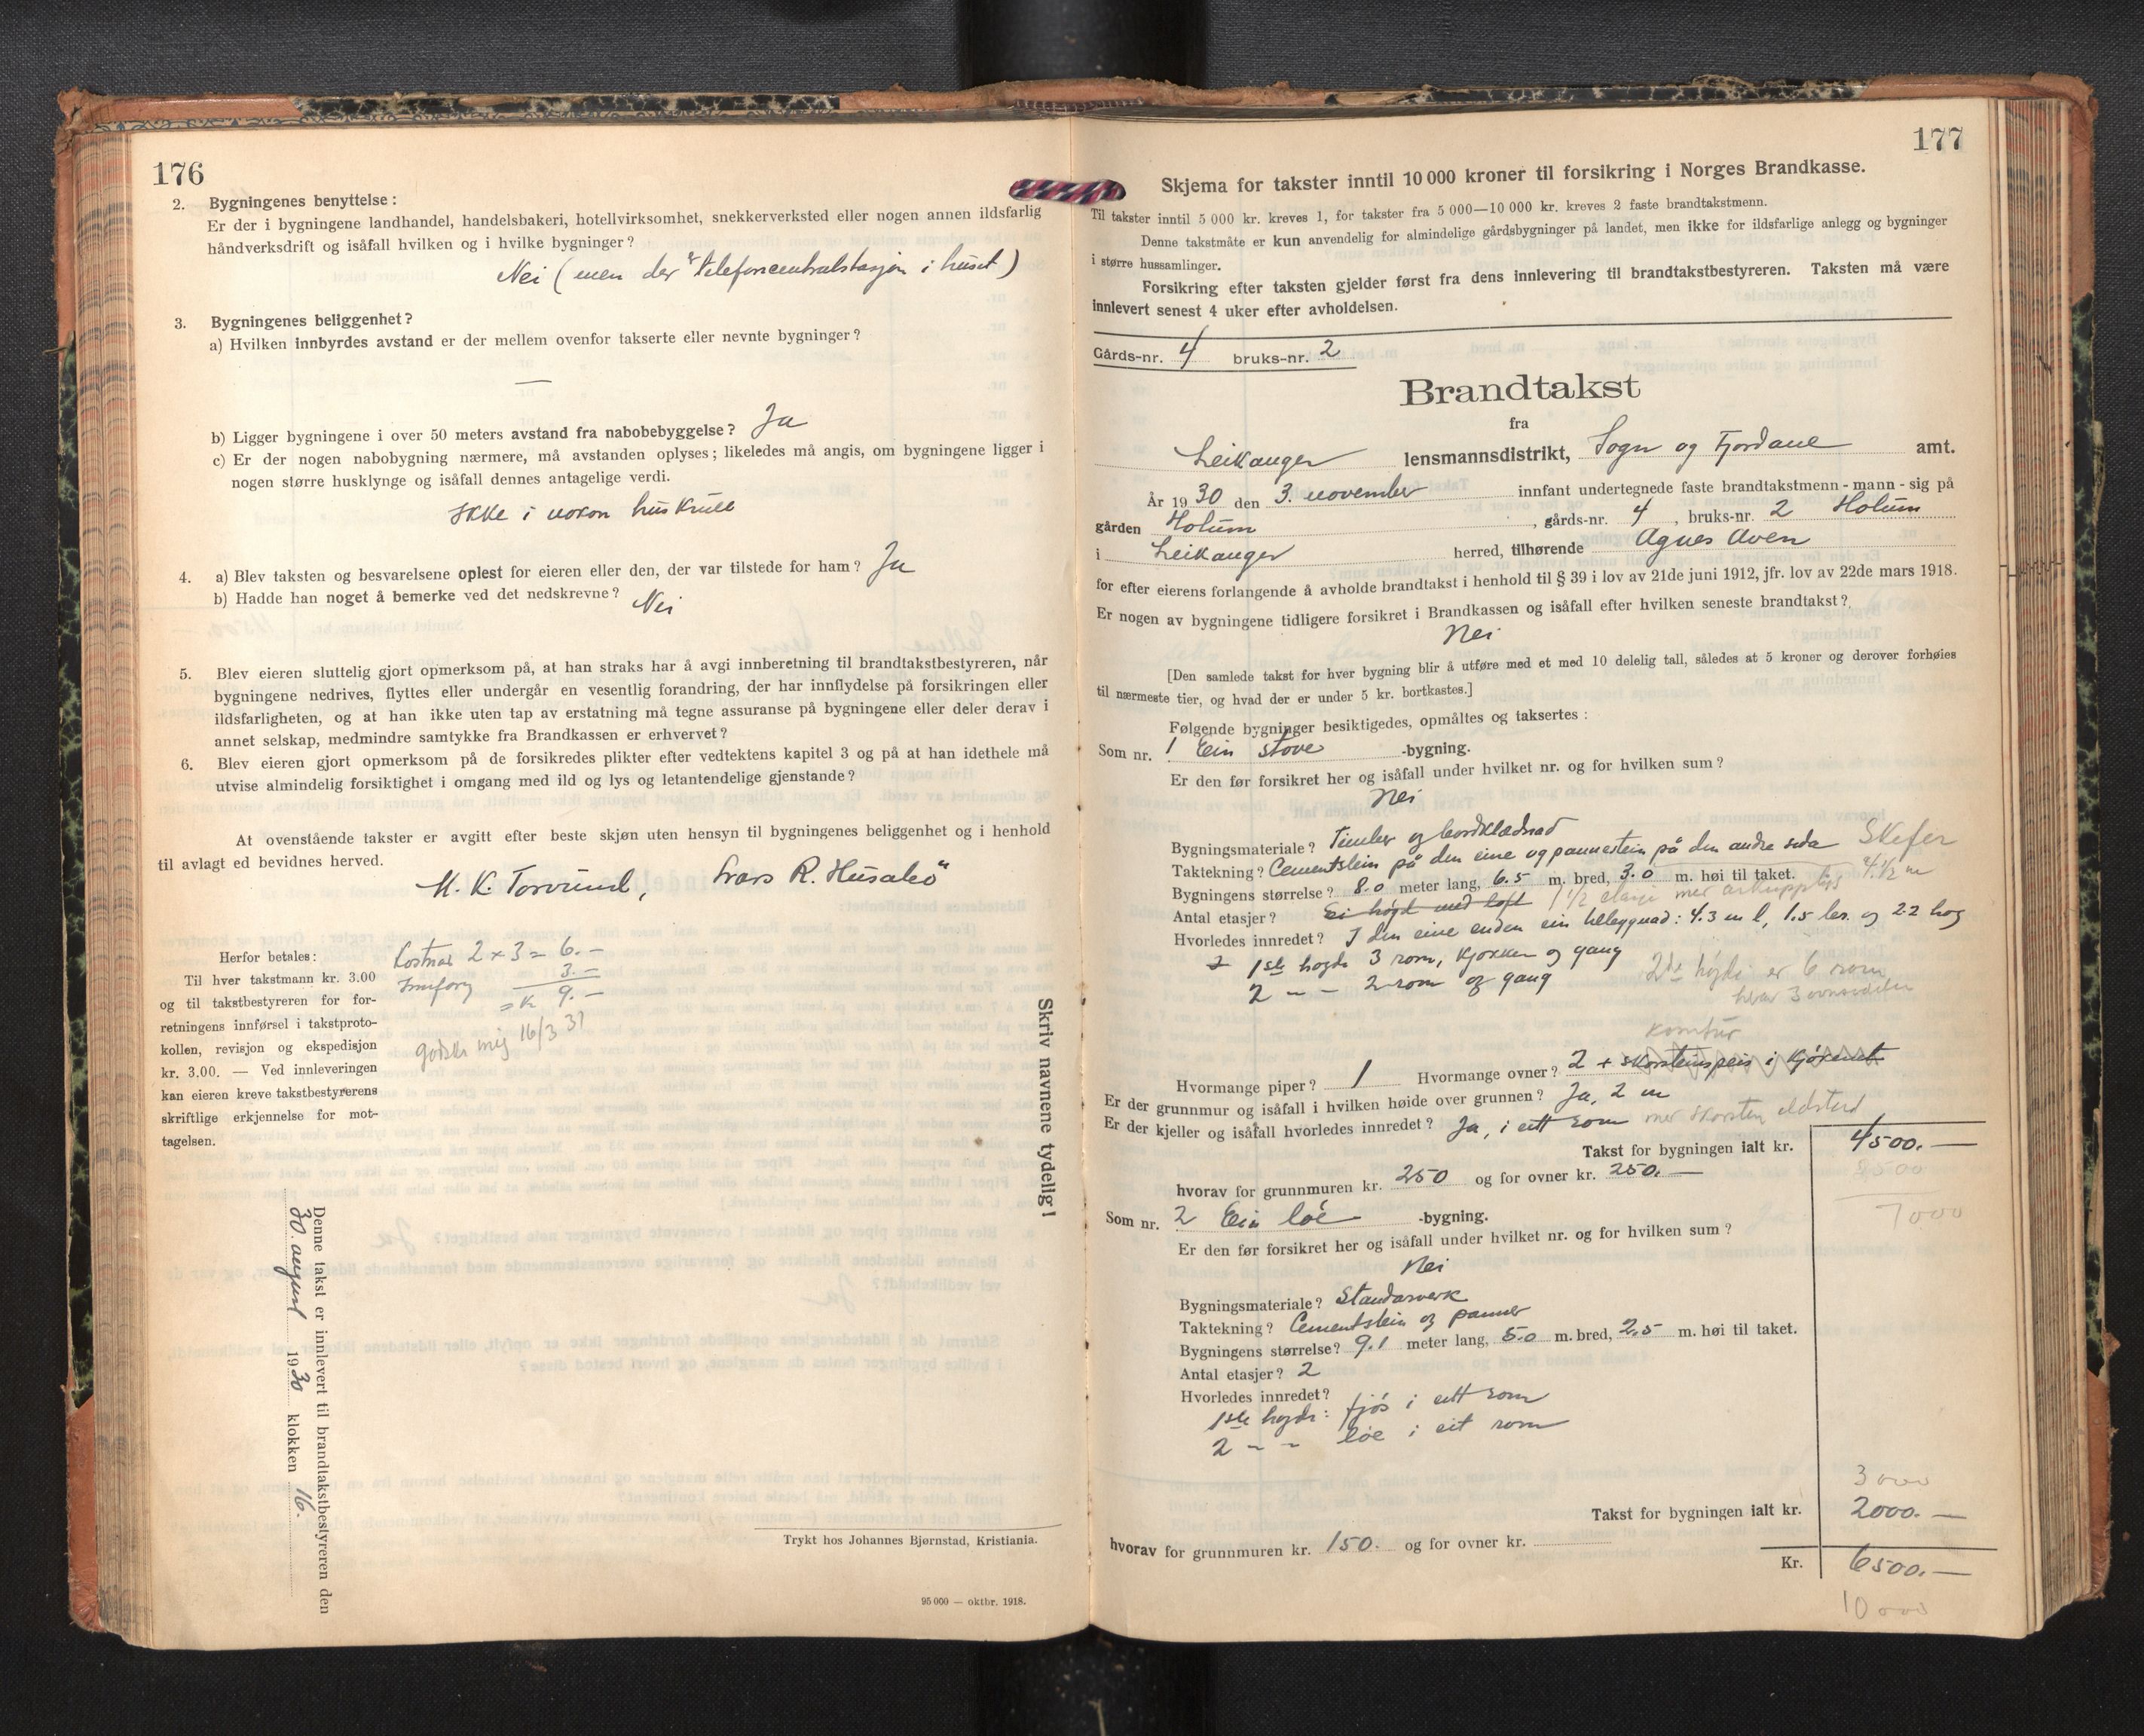 176
2. Bygningenes benyttelse :
Er der i bygningene landhandel, handelsbakeri, hotellvirksomhet, snekkerverksted eller nogen annen ildsfarlig
håndverksdrift og isåfall hvilken og i hvilke bygninger?
Nei (men der er telefoncentralstasjon i huset)
3. Bygningenes beliggenhet?
a) Hvilken innbyrdes avstand er der mellem ovenfor takserte eller nevnte bygninger?
—
b) Ligger bygningene i over 50 meters avstand fra nabobebyggelse? Ja
c) Er der nogen nabobygning nærmere, må avstanden oplyses; likeledes må angis, om bygningene ligger i
nogen større husklynge og isåfall dennes antagelige verdi.
Ikke i nokon huskrull
4. a) Blev taksten og besvarelsene oplest for eieren eller den, der var tilstede for ham? Ja
b) Hadde han noget å bemerke ved det nedskrevne? Nei
5. Blev eieren sluttelig gjort opmerksom på, at han straks har å avgi innberetning til brandtakstbestyreren, når
bygningene nedrives, flyttes eller undergår en vesentlig forandring, der har innflydelse på forsikringen eller
ildsfarligheten, og at han ikke uten tap av erstatning må tegne assuranse på bygningene eller deler derav i
annet selskap, medmindre samtykke fra Brandkassen er erhvervet?
6. Blev eieren gjort opmerksom på de forsikredes plikter efter vedtektens kapitel 3 og på at han idethele må
utvise almindelig forsiktighet i omgang med ild og lys og letantendelige gjenstande?
At ovenstående takster er avgitt efter beste skjøn uten hensyn til bygningenes beliggenhet og i henhold
til avlagt ed bevidnes herved.
M. K. Torvund, Lars R. Husabö
Herfor betales:
Til hver takstmann kr. 3.00
og til takstbestyreren for for-
retningens innførsel i takstproto-
kollen, revisjon og ekspedisjon
kr. 3.00. — Ved innleveringen
kan eieren kreve takstbestyrerens
skriftlige erkjennelse for mot-
tagelsen.
Kostnad 2 x 3 = 6.-
Innføry 3.-
= K 9.-
16/3 31
Skriv navnene tydelig!
Denne takst er innlevert til brandtakstbestyreren den
30. august 1930 klokken 16.
Trykt hos Johannes Bjørnstad, Kristiania.
95 000 — oktbr. 1918.
177
Skjema for takster inntil 10 000 kroner til forsikring i Norges Brandkasse.
Til takster inntil 5 000 kr. kreves 1, for takster fra 5 000—10 000 kr. kreves 2 faste brandtakstmenn.
Denne takstmåte er kun anvendelig for almindelige gårdsbygninger på landet, men ikke for ildsfarlige anlegg og bygninger
i større hussamlinger.
Forsikring efter taksten gjelder først fra dens innlevering til brandtakstbestyreren. Taksten må være
innlevert senest 4 uker efter avholdelsen.
Gårds-nr. 4 bruks-nr. 2
Brandtakst
fra
Leikanger lensmannsdistrikt, Sogn og Fjordane amt.
År 1930 den 3. november innfant undertegnede faste brandtakstmenn - mann - sig på
gården Holum, gårds-nr. 4, bruks-nr. 2 Holum
i Leikanger herred, tilhørende Agnes Aven
for efter eierens forlangende å avholde brandtakst i henhold til § 39 i lov av 21de juni 1912, jfr. lov av 22de mars 1918.
Er nogen av bygningene tidligere forsikret i Brandkassen og isåfall efter hvilken seneste brandtakst?
Nei
[Den samlede takst for hver bygning blir å utføre med et med 10 delelig tall, således at 5 kroner og derover forhøies
til nærmeste tier, og hvad der er under 5 kr. bortkastes.]
Følgende bygninger besiktigedes, opmåltes og taksertes :
Som nr. 1 Ein stove -bygning.
Er den før forsikret her og isåfall under hvilket nr. og for hvilken sum?
Nei
Bygningsmateriale? Timber og bordklædnad
Taktekning? Cementstein på den eine og pannestein på den andre sida Skifer
Bygningens størrelse? 8.0 meter lang, 6.5 m. bred, 3.0 m. høi til taket. 4.1/2 m
Antal etasjer? Ei høgd med loft 1 1/2 etasje mer arkupplys
Hvorledes innredet? I den eine enden ein tilbyggnad: 4.3 m l, 1.5 br. og 2.2 høg
I 1ste høgde 3 rom, kjøkken og gang
2 - - 2 rom og gang 2de høgdi er 6 rom,
hvor 3
komfur
Hvormange piper? 1 Hvormange ovner? 2 + skorsteinspeis i kjøkenet
Er der grunnmur og isåfall i hvilken høide over grunnen? Ja, 2 m
Er der kjeller og isåfall hvorledes innredet? Ja, i eitt rom mer skorsten eldsted
Takst for bygningen ialt kr. 4500.—
2500
hvorav for grunnmuren kr. 250 og for ovner kr. 250.—
7000
Som nr. 2 Ein löe -bygning.
Er den før forsikret her og isåfall under hvilket nr. og for hvilken sum?
Nei
Bygningsmateriale? Standarverk
Taktekning? Cementstein og panner
Bygningens størrelse? 9.1 meter lang, 5.0 m. bred, 2.5 m. høi til taket.
Antal etasjer? 2
Hvorledes innredet?
1ste høgde: fjós i eitt rom
2 - - löe i eit rom
3000
Takst for bygningen ialt kr. 2000.—
hvorav for grunnmuren kr. 150. og for ovner kr.
Kr. 6500.—
10000